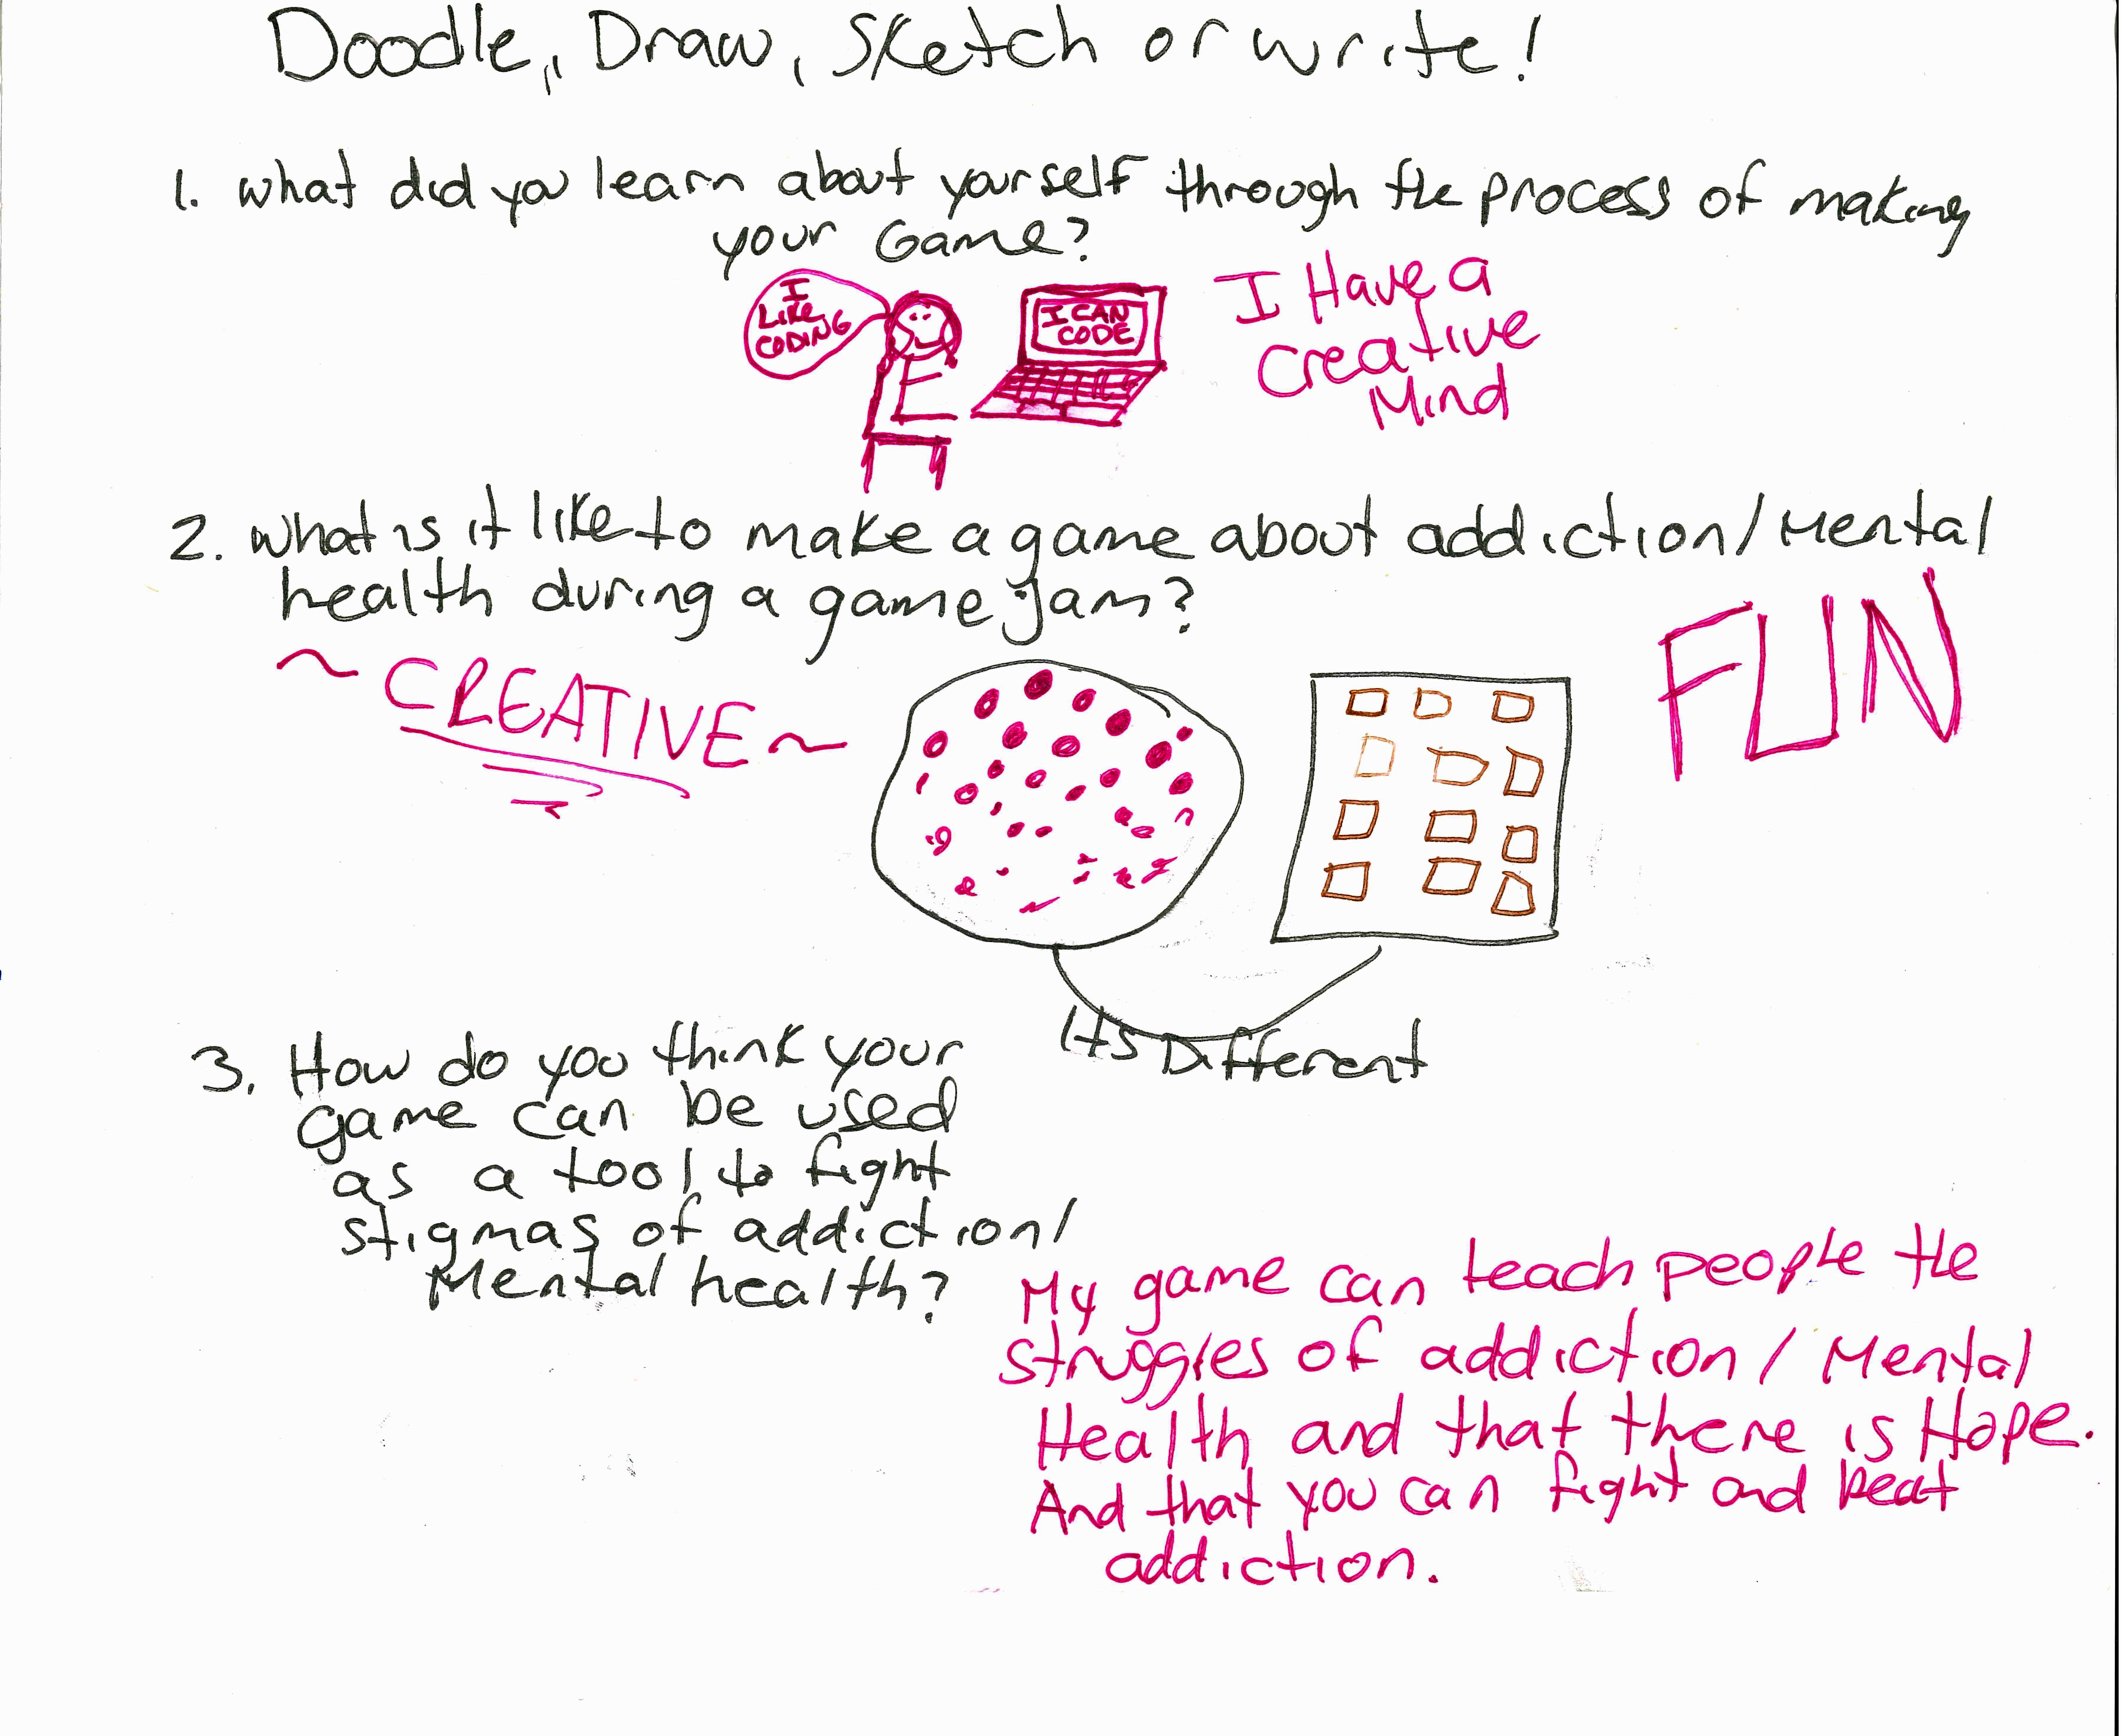 Doodle, Draw, Sketch or write!
1. what did you learn about yourself through the process of making
your Game?
I
LIKE
CODING
I CAN
CODE
I Have a
Creative
Mind
2. what is it like to make a game about addiction/Mental
health during a game jam?
~CREATIVE~
FUN
Its Different
3. How do you think your
game can be used
as a tool to fight
stigmas of addiction/
Mental health?
My game can teach people the
struggles of addiction / Mental
Health and that there is Hope.
And that you can fight and beat
addiction.